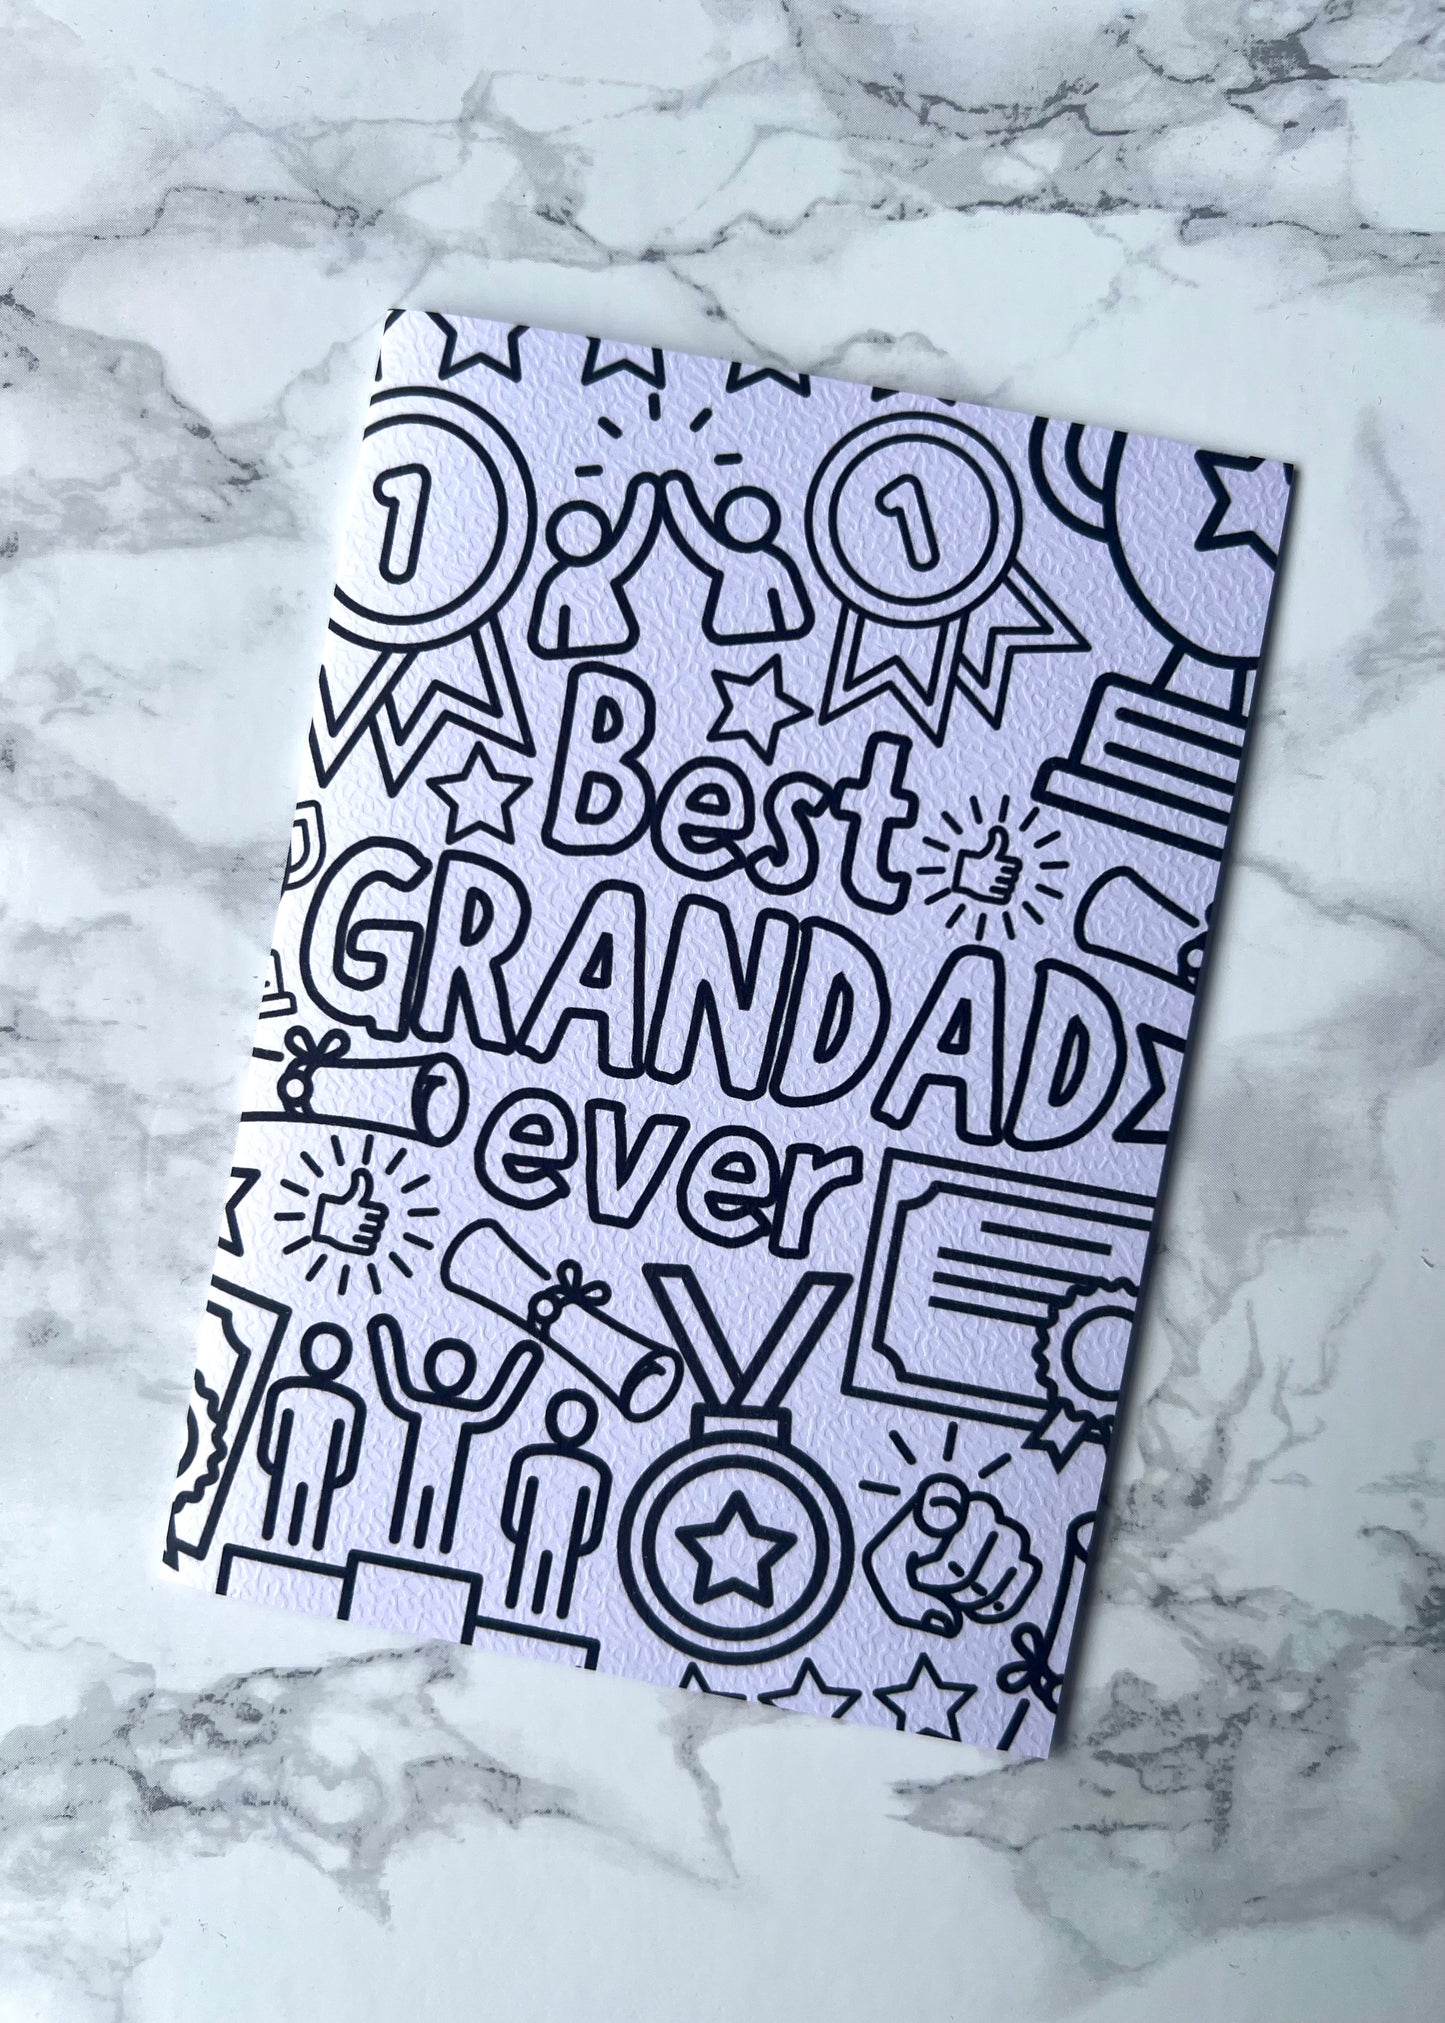 1
1
Best
GRANDAD
ever